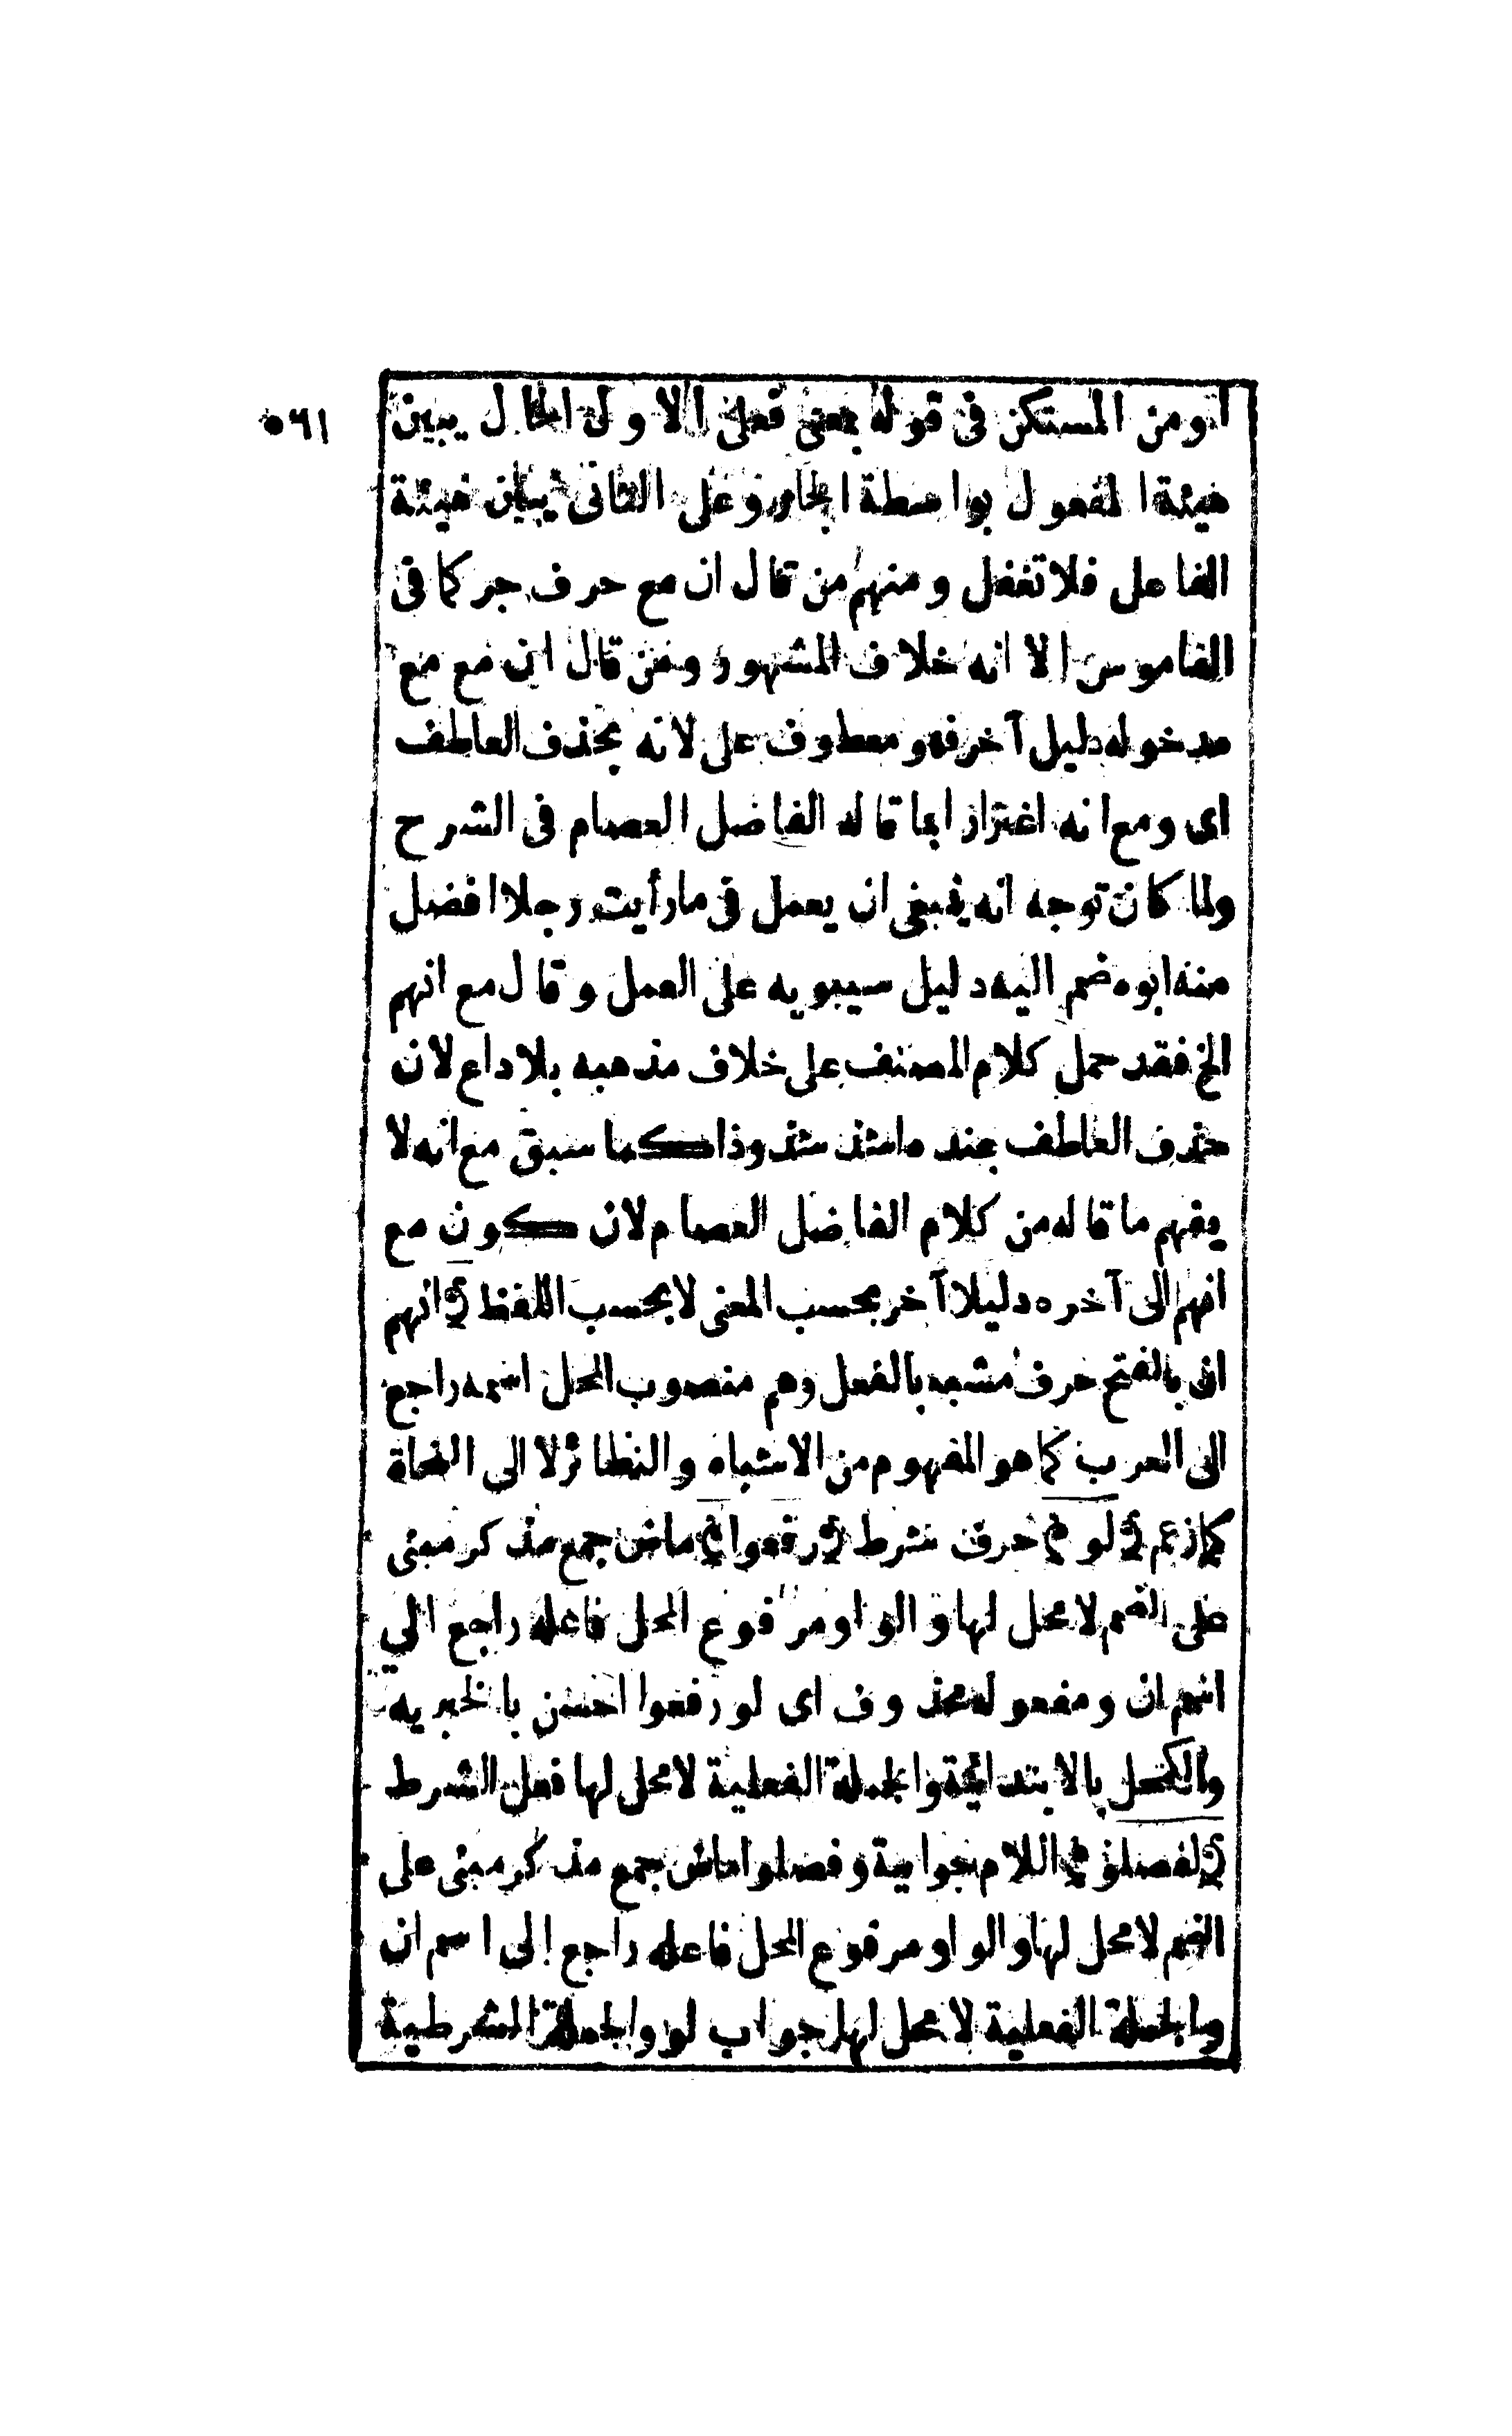 ٥٦١
او من المستكن فى قوله بمعنى فعلى الاول الحال يبين
هيئة المفعول بواسطة الجار وعلى الثانى يبين هيئة
الفاعل فلا تغفل ومنهم من قال ان مع حرف جر كما فى
القاموس الا انه خلاف المشهور ومن قال ان مع مع
مدخوله دليل آخر فهو معطوف على لانه بحذف العاطف
اى ومع انه اغترارا بما قاله الفاضل العصام فى الشرح
ولما كان توجه انه ينبغى ان يعمل فى ما رأيت رجلا افضل
منه ابوه ضم اليه دليل سيبويه على العمل وقال مع انهم
الخ فقد حمل كلام المصنف على خلاف مذهبه بلا داع لان
حذف العاطف عنده شاذ شذوذا كما سبق مع انه لا
يفهم ما قاله من كلام الفاضل العصام لان كون مع
انهم الى آخره دليلا آخر بحسب المعنى لا بحسب اللفظ ﴿ انهم
ان بالفتح حرف مشبه بالفعل وهم منصوب المحل اسمه راجع
الى العرب كما هو المفهوم من الاشباه والنظائر لا الى النحاة
كما زعم ﴿ لو ﴾ حرف شرط ﴿ رفعوا ﴾ ماض جمع مذكر مبنى
على الضم لا محل لها والواو مرفوع المحل فاعله راجع الى
اسم ان ومفعوله محذوف اى لو رفعوا احسن بالخبرية
والكحل بالابتدائية والجملة الفعلية لا محل لها فعل الشرط
﴿ لفصلوا ﴾ اللام جوابية وفصلوا ماض جمع مذكر مبنى على
الضم لا محل لها والواو مرفوع المحل فاعله راجع الى اسم ان
والجملة الفعلية لا محل لها جواب لو والجملة الشرطية